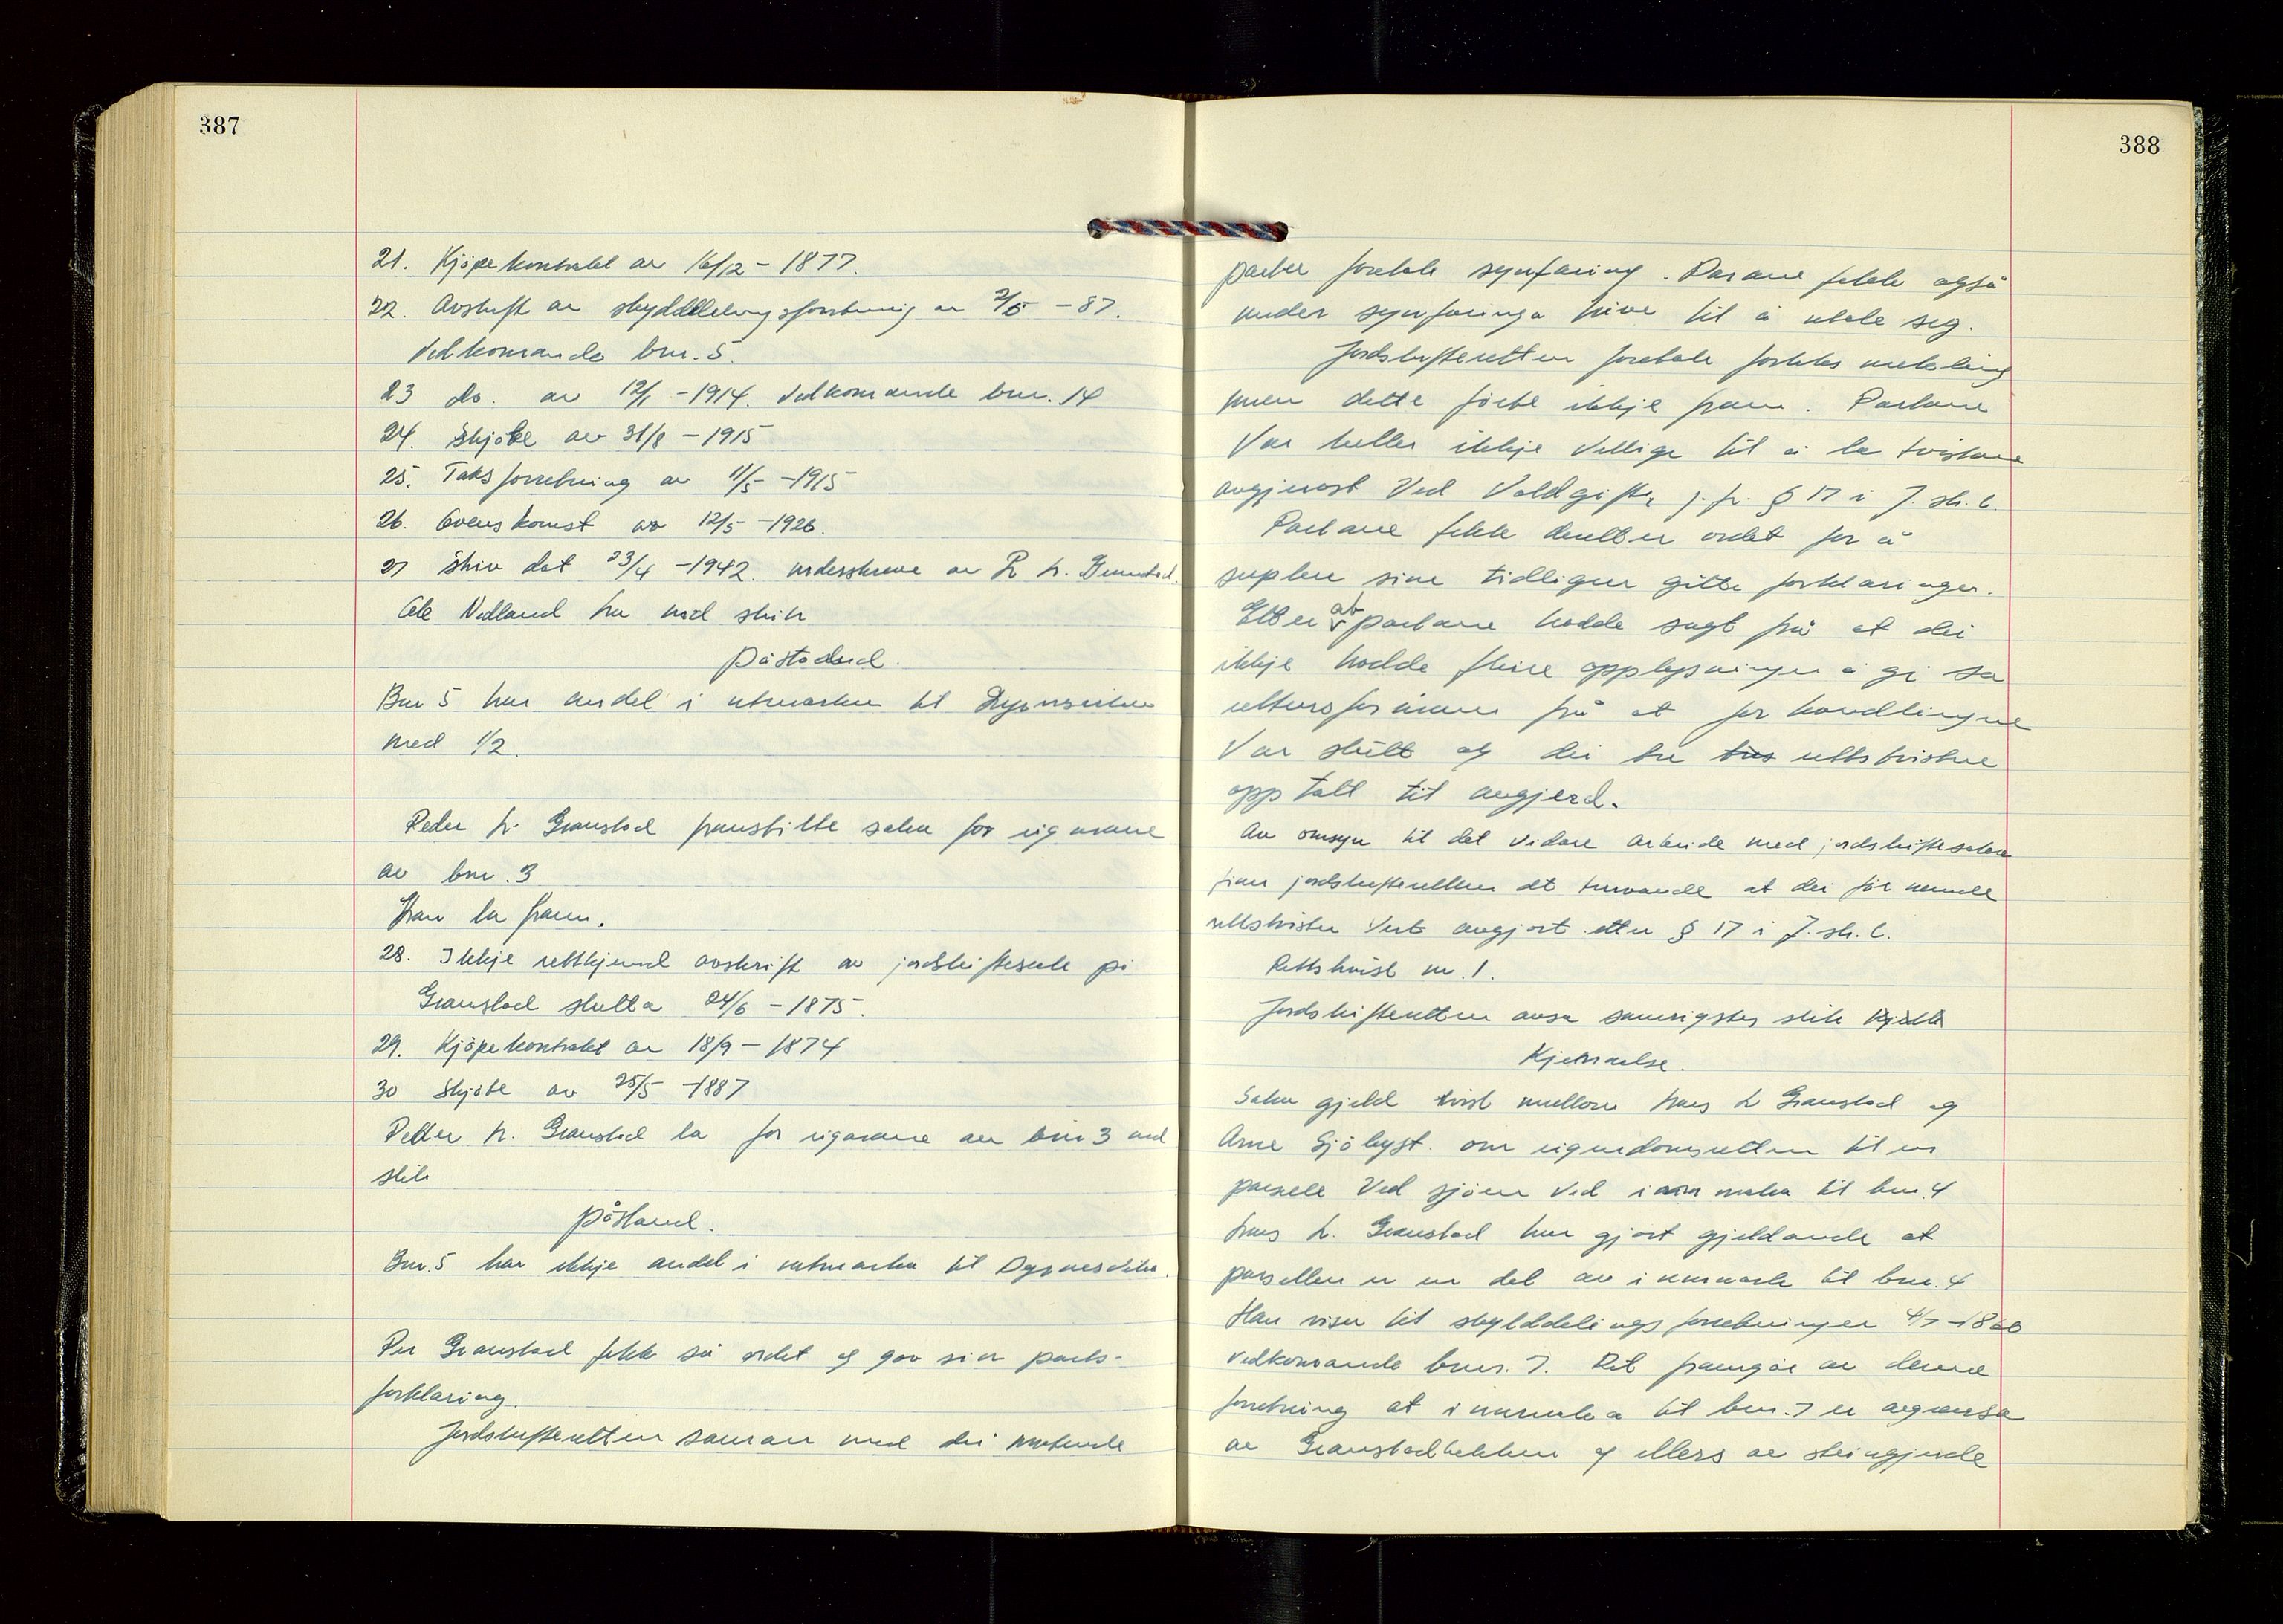 387
21. Kjöpekontrakt av 16/12 - 1877.
22. Avskrift av skylddelingsforretning av 2/5 - 87.
Vedkomande bnr. 5.
23 do. av 12/1 - 1914. Vedkomande bnr. 14
24. Skjöte av 31/8 - 1915
25. Taksforretning av 11/5 - 1915
26. Overeskomst av 12/5 - 1926.
27 Skriv dat 23/4 - 1942. underskreve av P. H. Gramstad.
Ole Nedland la ned slik
Påstand.
Bnr 5 har andel i utmarka til Dysneseiter
med 1/2.
Peder H. Gramstad framstilte saka for eigarane
av bnr. 3
Han la fram.
28. Ikkje rettkjend avskrift av jordskiftesak på
Gramstad slutta 24/6 - 1875.
29. Kjöpekontrakt av 18/9 - 1874
30 Skjöte av 25/5 - 1887
Peder H. Gramstad la for eigarane av bnr 3 ned
slik
påstand.
Bnr. 5 har ikkje andel i utmarka til Dysneseiter.
Per Gramstad fekk så ordet og gav sin parts-
forklaring.
Jordskifteretten saman med dei møtande
388
partar foretok synfaring. Partane fekk også
under synfaringa høve til å uttale seg.
Jordskifteretten foretok forliks mekling
men dette förte ikkje fram. Partane
Var heller ikkje Villige til å la tvistane
avgjerast Ved Voldgift, j.fr. § 17 i J. sk. l.
Partane fekk deretter ordet for å
suplere sine tidligere gitte forklaringer.
Etter at partane hadde sagt frå at dei
ikkje hadde fleire opplysninger å gi sa
rettensformann frå at forhandlingene
Var slutt og dei tre rettstvistene
opptatt til avgjerd.
Av omsyn til det vidare arbeide med jordskiftesaka
finn jordskifteretten det turvande at dei før nemnde
rettstvister Vert avgjort etter § 17 i J. sk. l.
Rettstvist nr. 1.
Jordskifteretten avsa samrøystes slik
Kjennelse.
Saka gjeld tvist mellom Hans L Gramstad og
Arne Sjöbygt. om eigendomsretten til en
parsele Ved sjöen Ved innmarka til bnr. 4
Hans L. Gramstad har gjort gjeldande at
parsellen er en del av innmark til bnr. 4
Han viser til skylddelings forretninger 4/7 - 1860
vedkomande bnr. 7. Det framgår av denne
forretning at innmarka til bnr. 7 er avgrensa
av Gramstadbekken og ellers av steingjerde